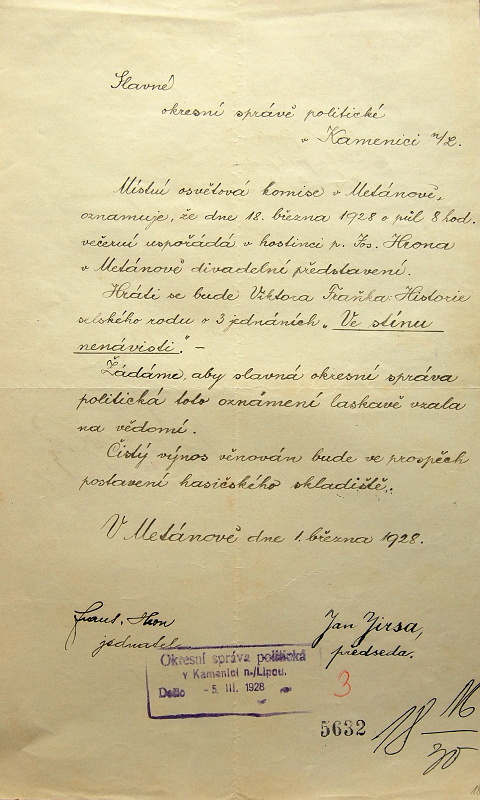 Slavné
okresní správě politické
v Kamenici n/L.
Místní osvětová komise v Metánově,
oznamuje, že dne 18. března 1928 o půl 8 hod.
večerní uspořádá v hostinci p. Jos. Hrona
v Metánově divadelní představení.
Hráti se bude Viktora Fraňka: Historie
selského rodu o 3 jednáních „Ve stínu
nenávisti." –
Žádáme, aby slavná okresní správa
politická toto oznámení laskavě vzala
na vědomí.
Čistý výnos věnován bude ve prospěch
postavení hasičského skladiště.
V Metánově dne 1. března 1928.
Frant. Hron
jednatel
Jan Jirsa,
předseda.
Okresní správa politická
v Kamenici n./Lipou.
Došlo - 5. III. 1928
3
5632
18